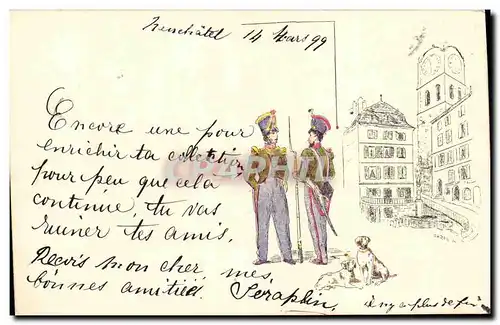 Neuchâtel 14 Mars 99
Encore une pour
enrichir ta collection
pour peu que cela
continue, tu vas
ruiner tes amis.
Reçois mon cher, mes
bonnes amitiés. Séraphin,
il n'y a plus de feu
CARPHILA